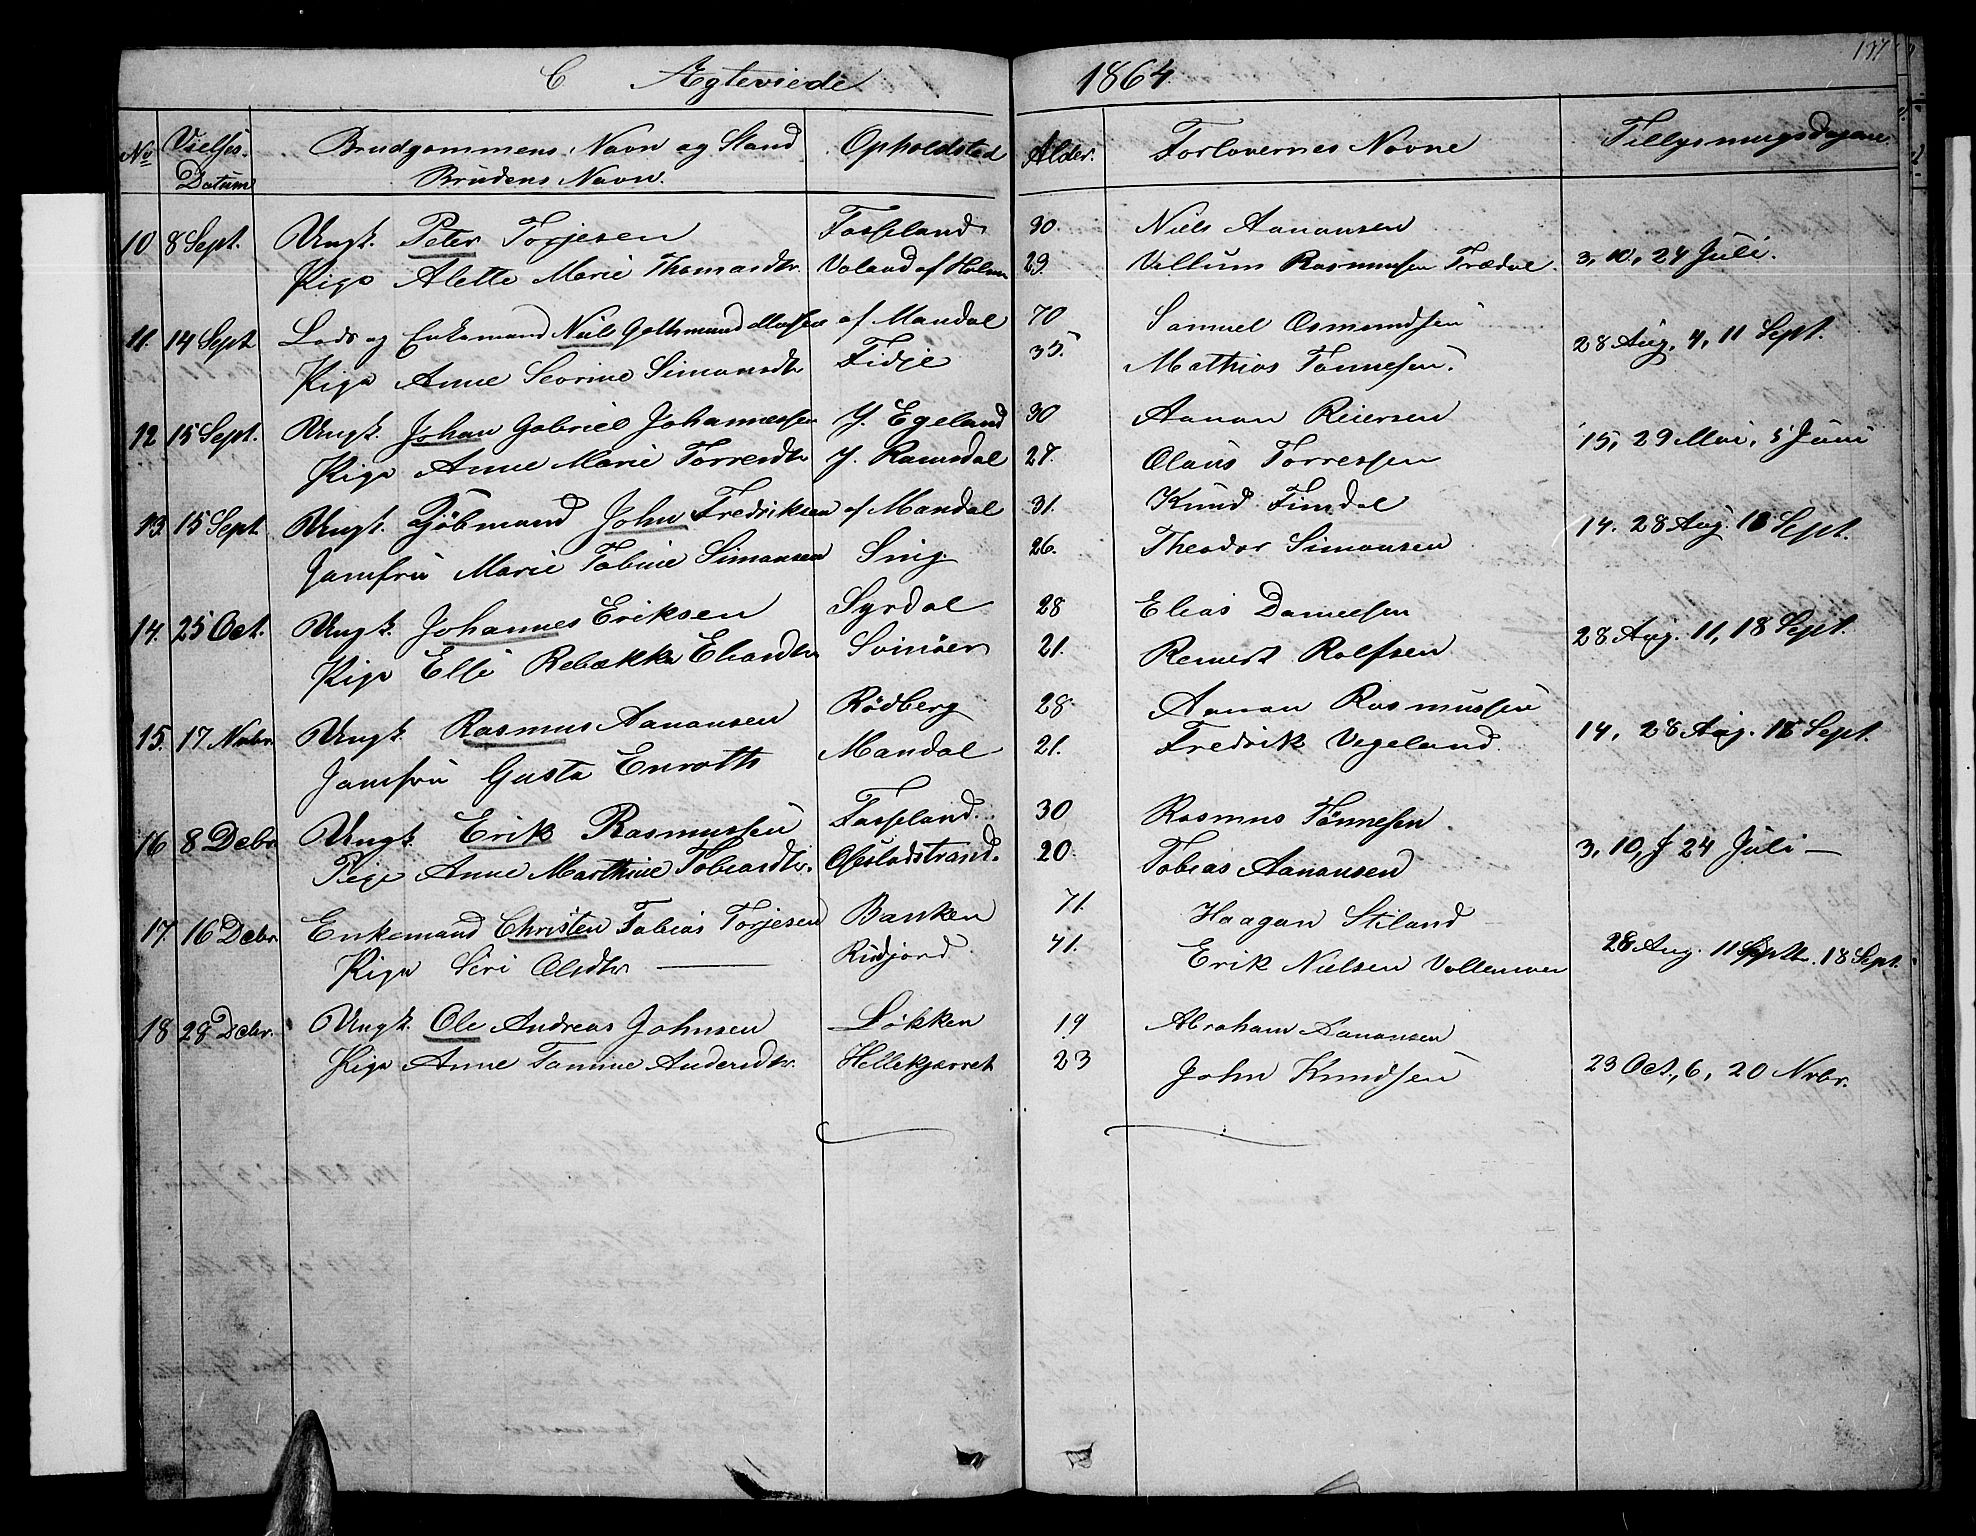 C Ægteviede 1864. 137
No Vielses Datum Brudgommens Navn og Stand Brudens Navn. Opholdsted Alder. Forlovernes Navne Tillysningsdagene.
10 8 Sept. Ungk. Peter Torjesen Fosseland 30. Niels Aanansen
Pige Alette Marie Thomasdtr. Valand af Holum 29. Villum Rasmusen Trædal. 3, 10, 24 Juli.
11. 14 Sept. Lods og Enkemand Niel Gothmund af Mandal 70 Samuel Osmundsen
Pige Anne Severine Simonsdtr Fidje 35. Mathias Tønnesen. 28 Aug. 4, 11 Sept.
12 15 Sept. Ungk. Johan Gabriel Johannessen Y. Egeland 30 Aanan Reiersen
Pige Anne Marie Torresdtr Y. Ramsdal 27. Olaus Torressen 15, 29 Mai, 5 Juni
13. 15 Sept. Ungk. Kjøbmand John Fredriksen af Mandal 31. Knud Fimdal
Jomfru Marie Tobine Simonsen Sning. 26. Theodor Simonsen 14. 28 Aug. 18 Sept.
14. 25 Oct. Ungk. Johannes Eriksen Syrdal 28 Elias Danielsen
Pige Elsi Rebækka Eliasdtr Svinøer 21. Reinert Rolfsen 28 Aug. 11, 18 Sept.
15. 17 Nvbr. Ungk. Rasmus Aanansen Rødberg 28. Aanan Rasmussen
Jomfru Gusta Enroth Mandal 21. Fredrik Vigeland. 14, 28 Aug. 18 Sept.
16 8 Debr. Ungk. Erik Rasmussen Fosseland. 30 Rasmus Tønnesen.
Pige Anne Marthine Tobiasdtr. Ofstadstrand. 20. Tobias Aanansen 3, 10, 24 Juli —
17. 16 Debr. Enkemand Christen Tobias Torjesen Banken 71. Haagan Stiland
Pige Siri Olsdtr — Risdjord 41. Erik Nielsen Vollemoen 28 Aug. 11 Sept. 18 Sept.
18 28 Debr. Ungk. Ole Andreas Johnsen Løkken 19 Abraham Aanansen
Pige Anne Tomine Andersdtr. Hellekjærret 23 John Knudsen 23 Oct., 6, 20 Nvbr.